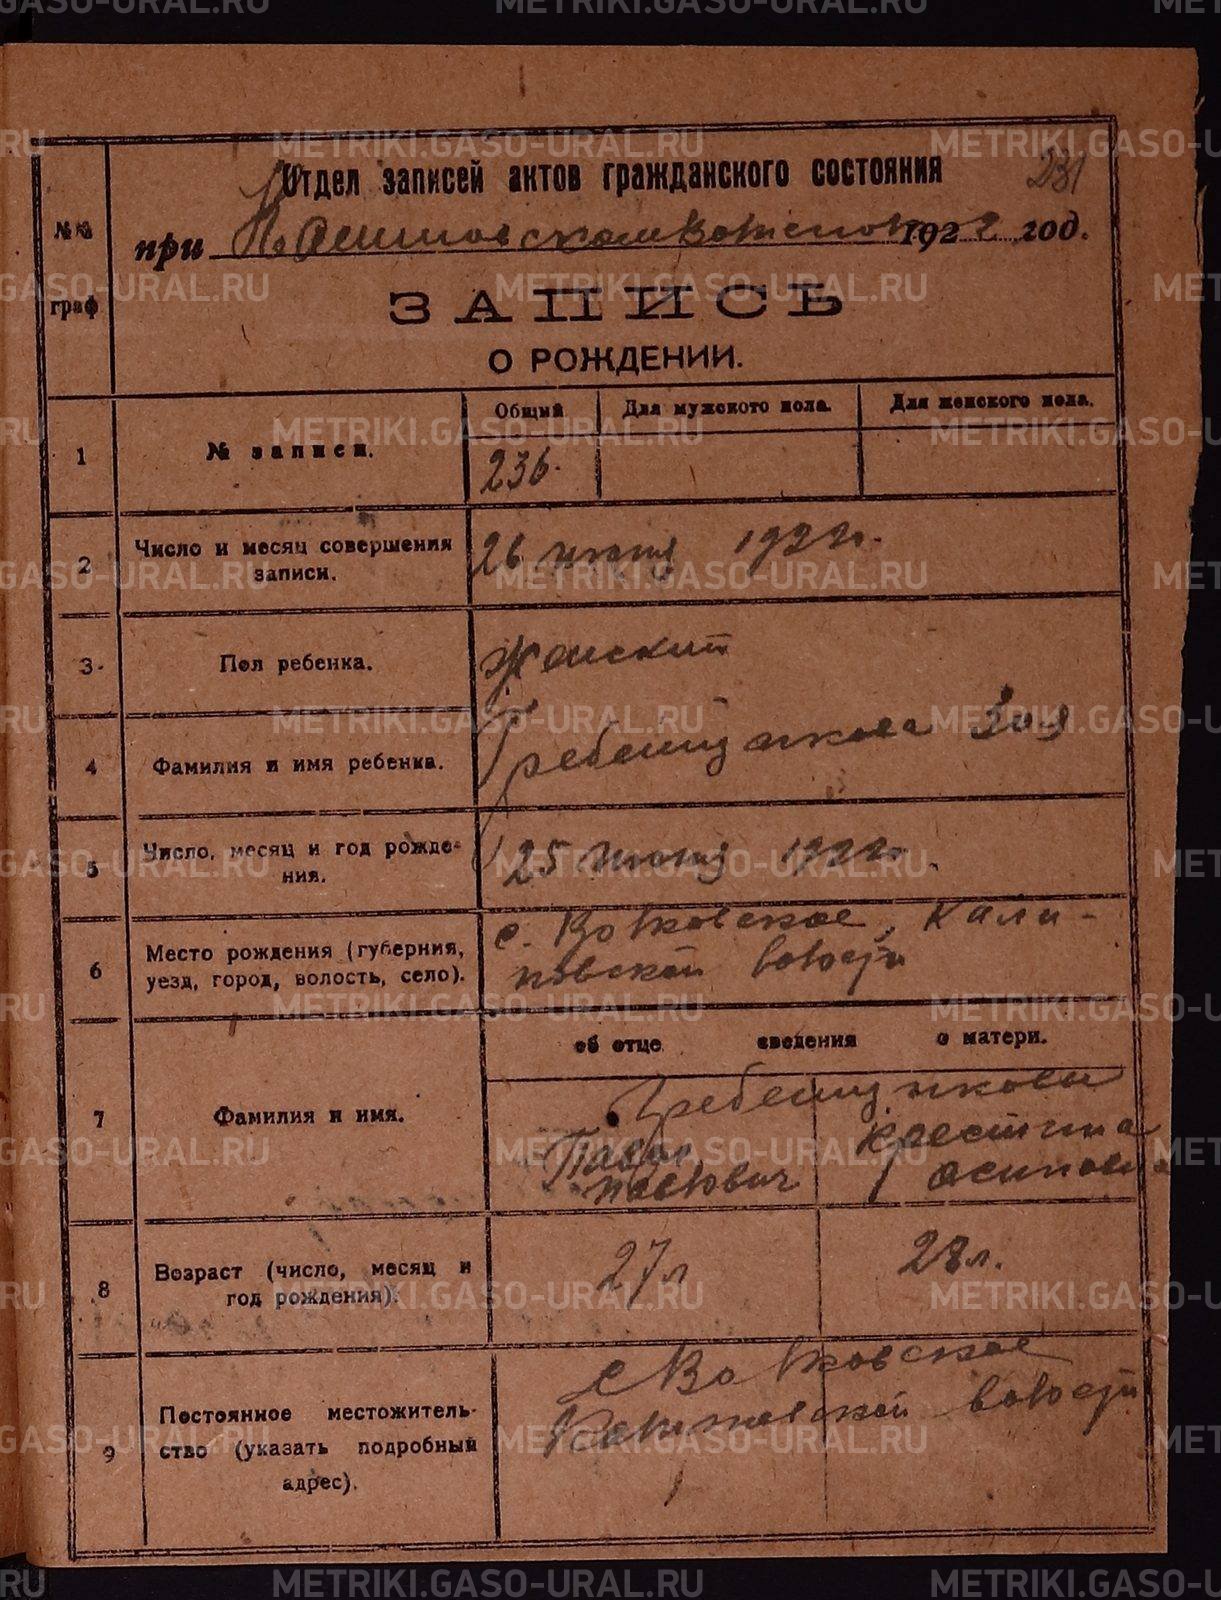 Отдел записей актов гражданского состояния
231
№№ граф
при Калиновском Волиспол 1922 год.
ЗАПИСЬ
О РОЖДЕНИИ.
1
№ записи.
Общий
Для мужского пола.
Для женского пола.
236.
2
Число и месяц совершения
записи.
26 июня 1922 г.
3
Пол ребенка.
Женский
4
Фамилия и имя ребенка.
Гребенщикова Зоя
5
Число, месяц и год рожде-
ния.
25 июня 1922 г.
6
Место рождения (губерния,
уезд, город, волость, село).
с. Волковское, Кали-
новской волости
об отце сведения о матери.
7
Фамилия и имя.
Гребенщиковы
Павел
Павлович
Крестина
Осиповна
8
Возраст (число, месяц и
год рождения).
27 л
28 л.
9
Постоянное местожитель-
ство (указать подробный
адрес).
с Волковское
Калиновской волости
METRIKI.GASO-URAL.RU